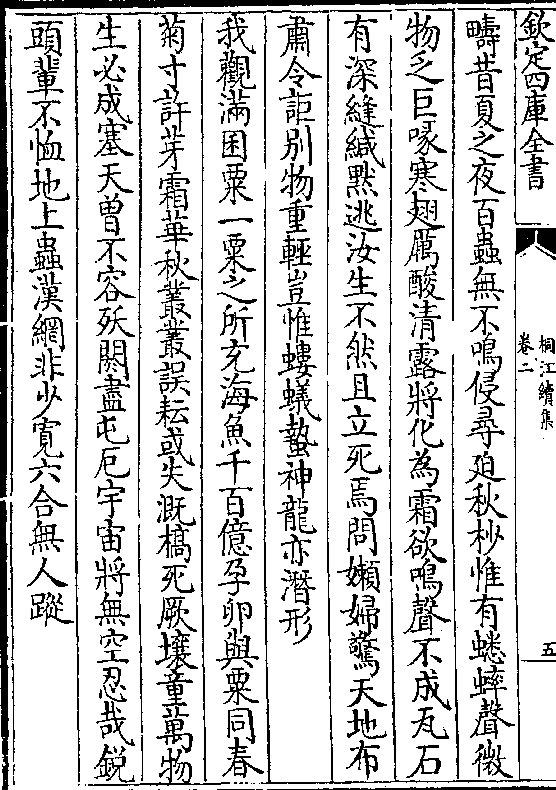 欽定四庫全書
桐江續集
卷二
五
疇昔夏之夜百蟲無不鳴侵尋廹秋杪惟有蟋蟀聲微
物乏巨喙寒翅厲酸清露將化為霜欲鳴聲不成瓦石
有深縫緘黙逃汝生不然且立死焉問嬾婦驚天地布
肅令詎别物重輕豈惟螻蟻蟄神龍亦潛形
我觀滿囷粟一粟之所充海魚千百億孕卵與粟同春
菊寸許芽霜華秋叢叢誤耘或失溉槁死厥壤童萬物
生必成塞天曽不容殀閼盡屯厄宇宙將無空忍哉鋭
頭輩不恤地上蟲漢網非少寛六合無人蹤